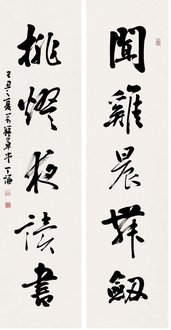 聞雞晨舞劍
挑燈夜讀書
己丑之夏